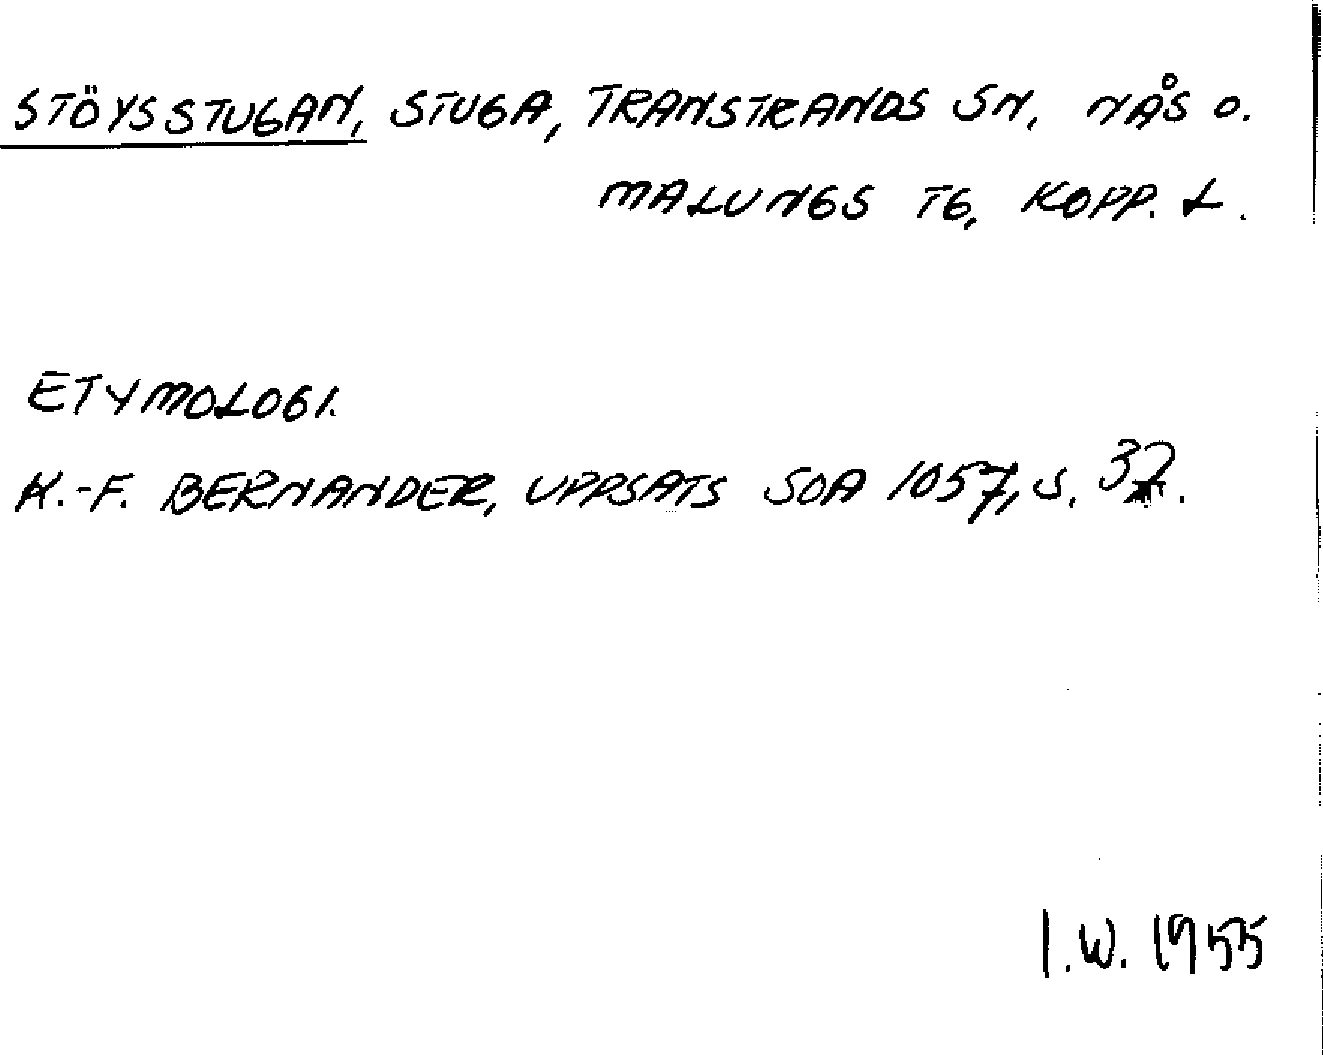 STÖYSSTUGAN, STUGA, TRANSTRANDS SN, NÅS O.
MALUNGS TG, KOPP. L.
ETYMOLOGI.
K.-F. BERNANDER, UPPSATS SOA 1057, S. 32.
I.W. 1955